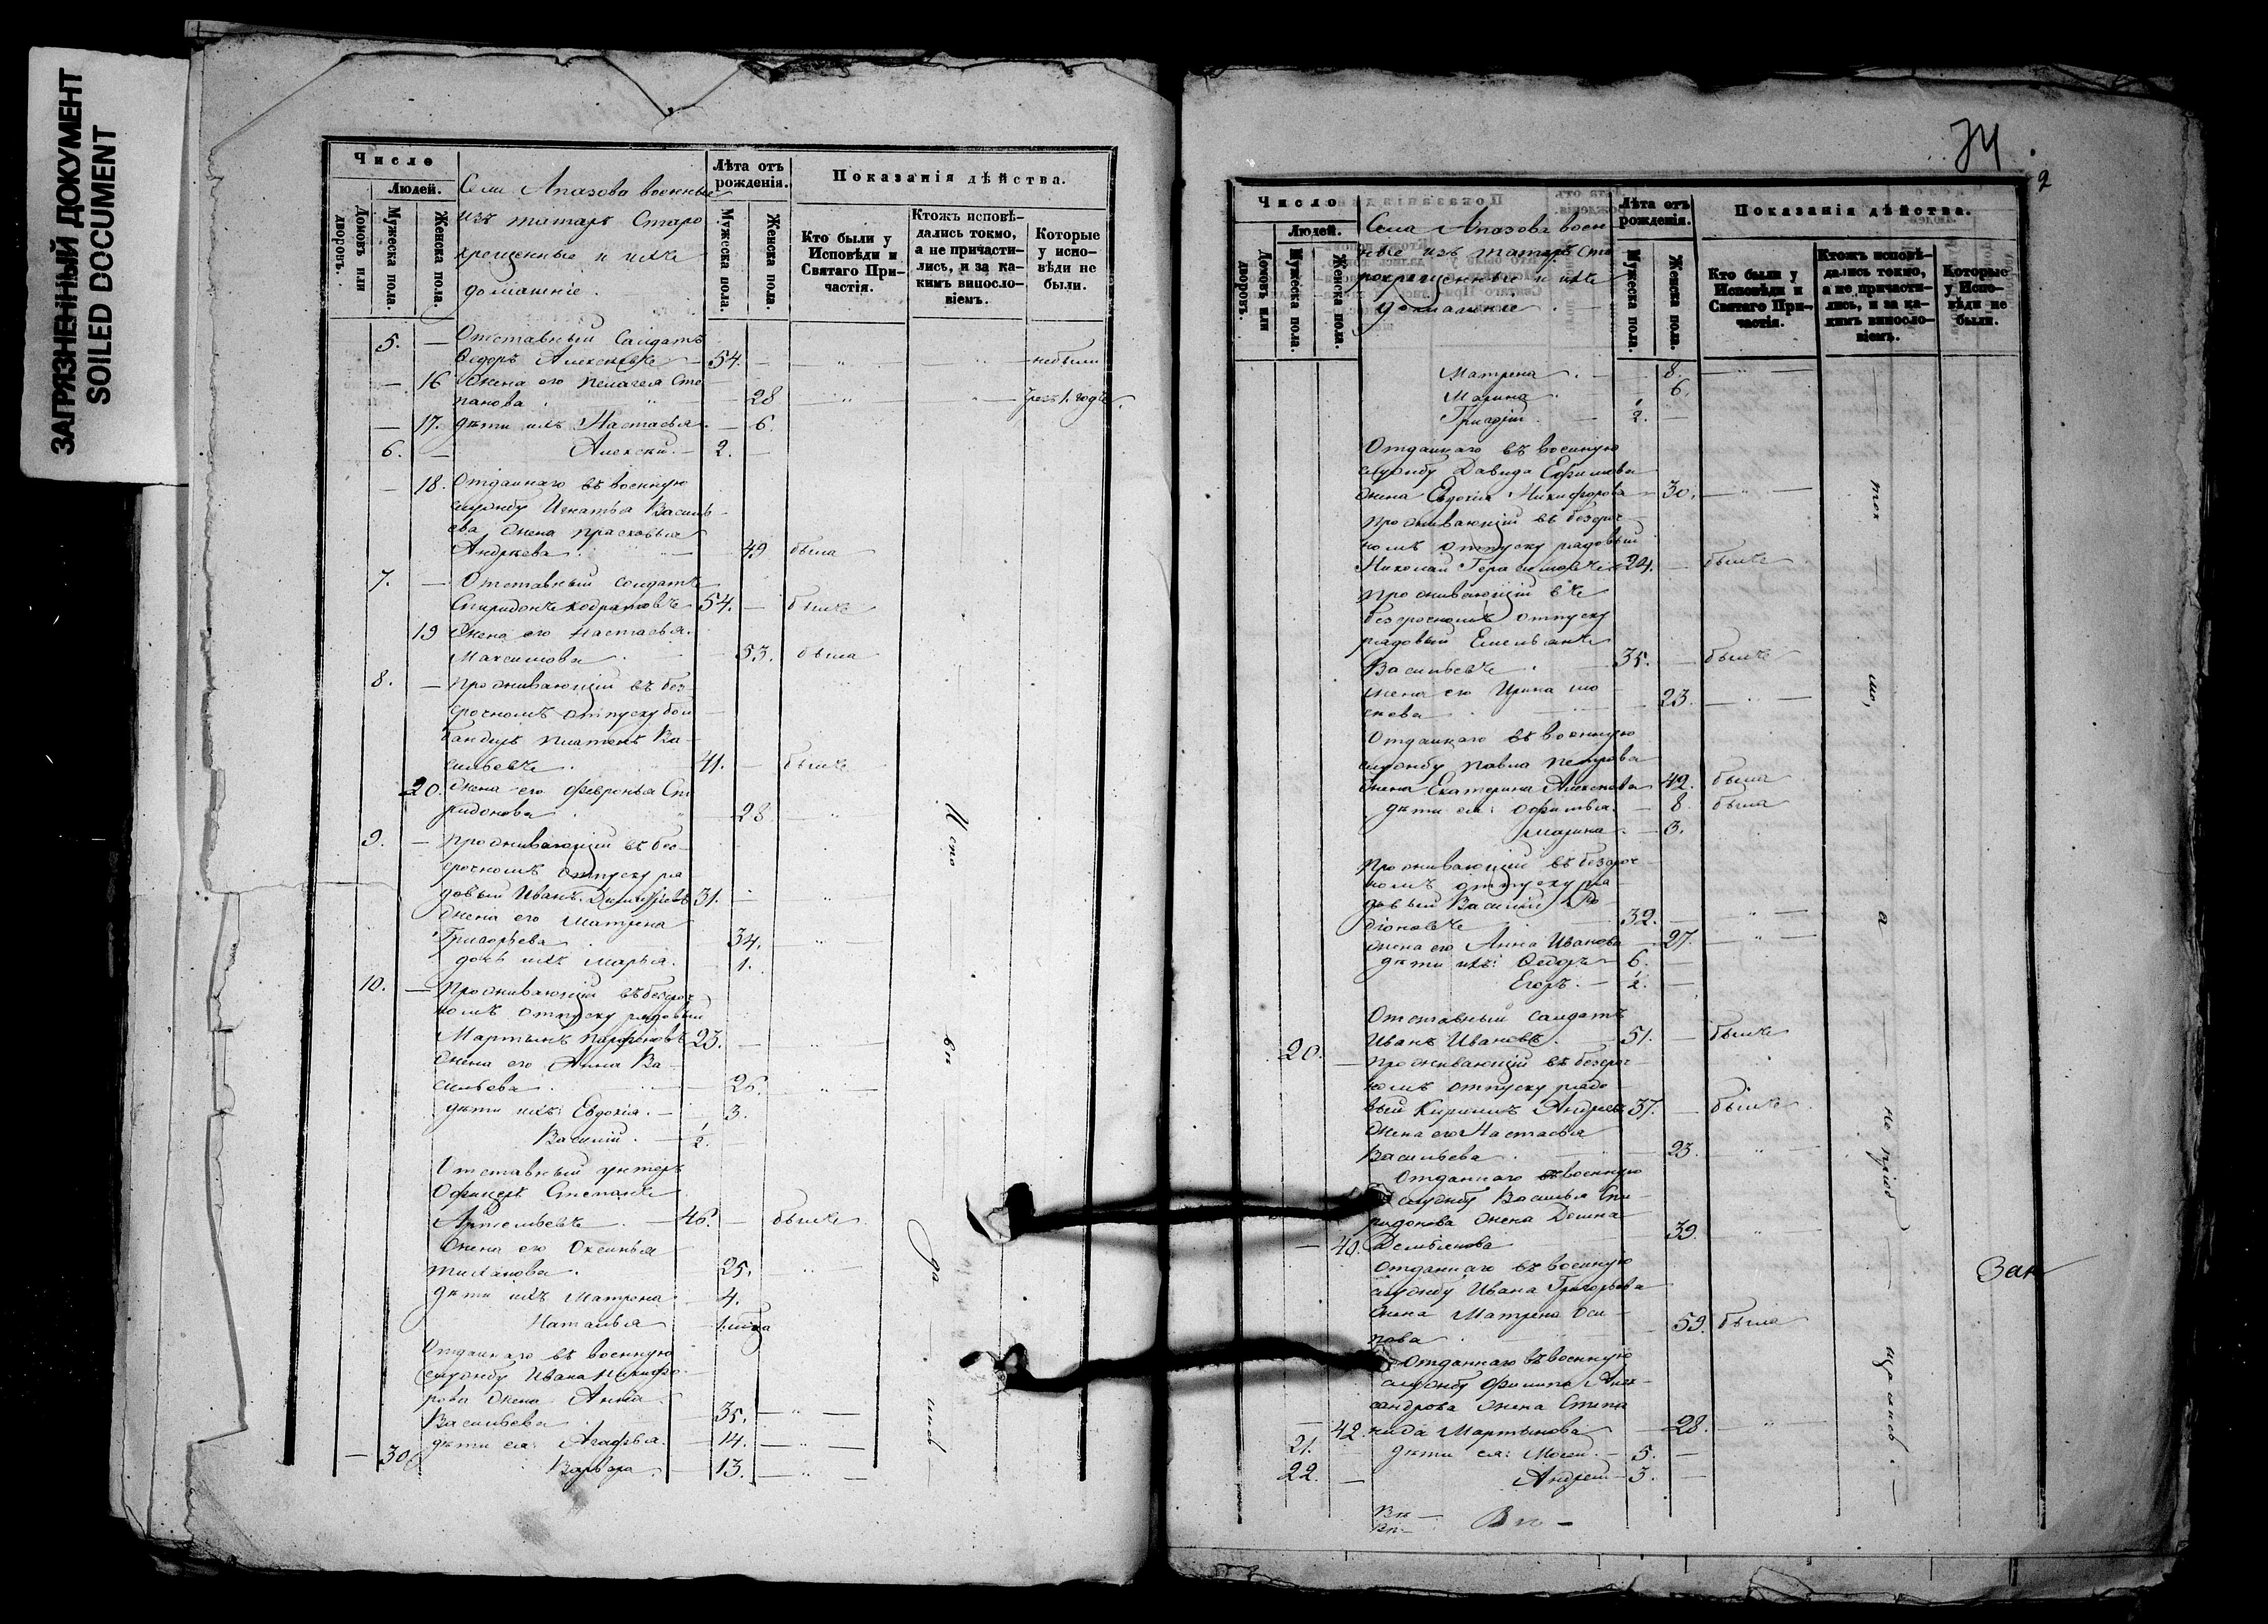 ЗАГРЯЗНЕННЫЙ ДОКУМЕНТ
SOILED DOCUMENT
Число
Людей.
Домовъ или дворовъ.
Мужеска пола.
Женска пола.
Села Апазова военные
изъ татаръ Старо
крещенные и ихъ
домашніе.
Лѣта отъ рожденія.
Мужеска пола.
Женска пола.
Показанія дѣйства.
Кто были у Исповѣди и Святаго Причастія.
Ктожъ исповѣдались токмо, а не причастились, и за какимъ винословіемъ.
Которые у исповѣди не были.
5. — Отставный Солдатъ
Ѳедоръ Алексѣевъ — 54. — небыли
— 16 Жена его Пелагея Сте
панова. — 28 чрезъ 1. годъ.
— 17. дѣти ихъ Настасья. — 6.
6. — Алексѣй. — 2. —
— 18. Отданнаго въ военную
службу Игнатья Василь-
ева жена Прасковья
Андреева. — 49 была
7. — Отставный солдатъ
Спиридонъ Кодратовъ 54. — былъ
19 Жена его Настасья
Максимова. — 53. была
8. — Проживающій въ без-
срочномъ отпуску бом
бандиръ Платонъ Ва-
сильевъ. 41. — былъ
20. Жена его Февронья Спи
ридонова. — 28 — „
9. — Проживающій въ без-
срочномъ отпуску ря
довый Иванъ Димитріевъ 31. — „
Жена его Матрена
Григорьева. 34. — „ —
дочь ихъ Марья. 1.
10. — Проживающій въ безсроч
номъ отпуску рядовый
Мартынъ Парфеновъ 23. — „ —
Жена его Анна Ва-
сильева. — 26. „ —
дѣти ихъ: Евдокія. — 3.
Василій. — ½. —
Отставный унтеръ
Офицеръ Степанъ
Артемьевъ. — 46. — былъ
Жена его Оксинья
Тиханова. 25. „
дѣти ихъ Матрона 4.
Наталья
Отданнаго въ военную
службу Ивана Никифо-
рова жена Анна
Васильева 35. — „ —
дѣти ея: Агафья. — 14. — „ —
— 30. Варвара. — 13. — „ —
Испо — вѣ — да — лись —
74
2
Число
Людей.
Домовъ или дворовъ.
Мужеска пола.
Женска пола.
Села Апазова воен
ные изъ татаръ Ста
рокрещенные и ихъ
домашніе.
Лѣта отъ рожденія.
Мужеска пола.
Женска пола.
Показанія дѣйства.
Кто были у Исповѣди и Святаго Причастія.
Ктожъ исповѣдались токмо, а не причастились, и за какимъ винословіемъ.
Которые у Исповѣди не были.
Матрена. — 8. — „ —
Марина. 6.
Григорій. ½. —
Отданнаго въ военную
службу Давида Ефимова
жена Евдокія Никифорова — 30. — „ —
Проживающій въ безсроч-
номъ отпуску рядовый
Николай Герасимовъ 24. — былъ
Проживающій въ
безсрочномъ отпуску
рядовый Емельянъ
Васильевъ. — 35. — былъ
жена его Ирина
23. — „ —
Отданнаго въ военную
службу Павла Петрова
жена Екатерина Алексеева 42. была
дѣти ея: Офимья. — 8. была
Марина. — 3.
Проживающій въ безсроч-
номъ отпуску ря-
довый Василій Ро-
діоновъ 32. — „ —
жена его Анна Иванова 27. — „ —
дѣти ихъ: Ѳедоръ — 6. —
Егоръ. — ½. —
Отставный солдатъ
Иванъ Ивановъ. — 51. — былъ
20. — Проживающій въ безсроч-
номъ отпуску рядо-
вый Кирилъ Андреевъ 37. — былъ
Жена его Настасья
Васильева. 23. „
Отданнаго въ военную
службу Василья Спи-
ридонова жена Домна
— 40. Демьянова 39. „
Отданнаго въ военную
службу Ивана Григорьева
жена Матрена Оси-
пова. 59. была
Отданнаго въ военную
службу Филипа Алек-
сандрова жена Степа
— 42. нида Мартынова — 28. „
21. дѣти ея: Мосей. — 5. —
22. — Андрей — 3. —
ток — мо, — а — не пріоб — щались. —
Зак